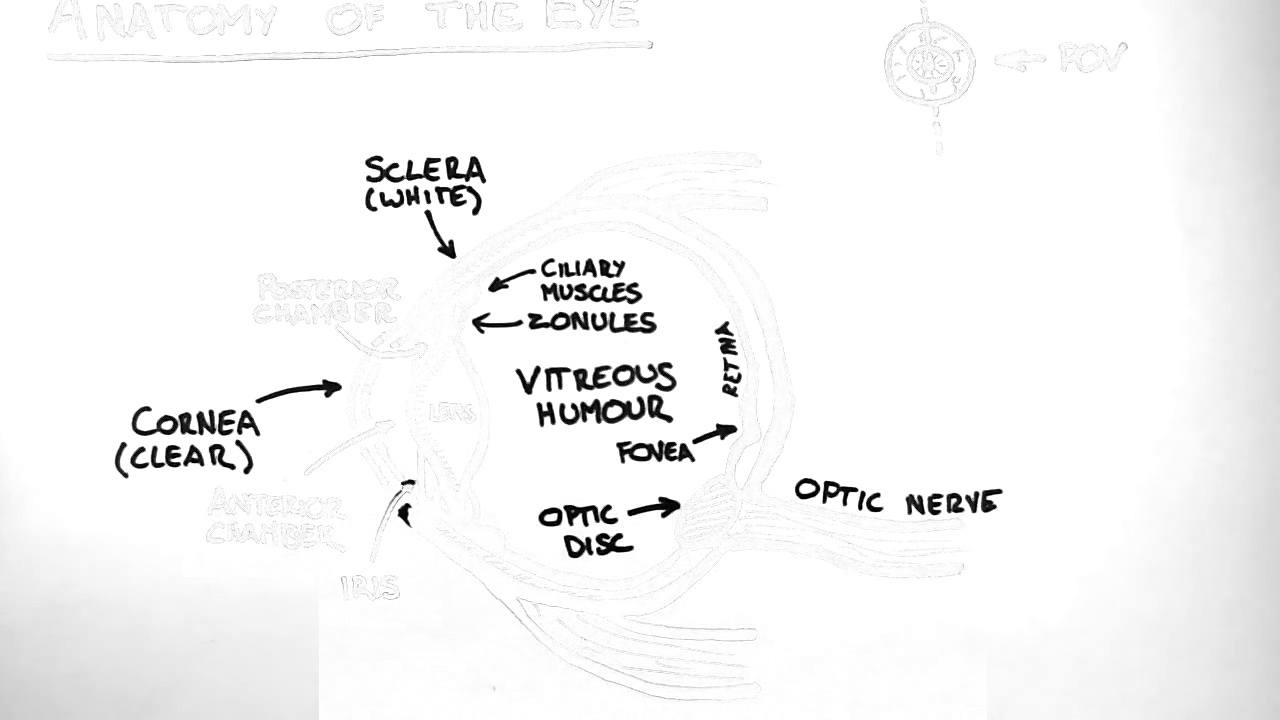 ANATOMY OF THE EYE
POV
SCLERA
(WHITE)
CILIARY
MUSCLES
ZONULES
POSTERIOR
CHAMBER
RETINA
VITREOUS
HUMOUR
LENS
CORNEA
(CLEAR)
FOVEA
ANTERIOR
CHAMBER
OPTIC NERVE
OPTIC
DISC
IRIS